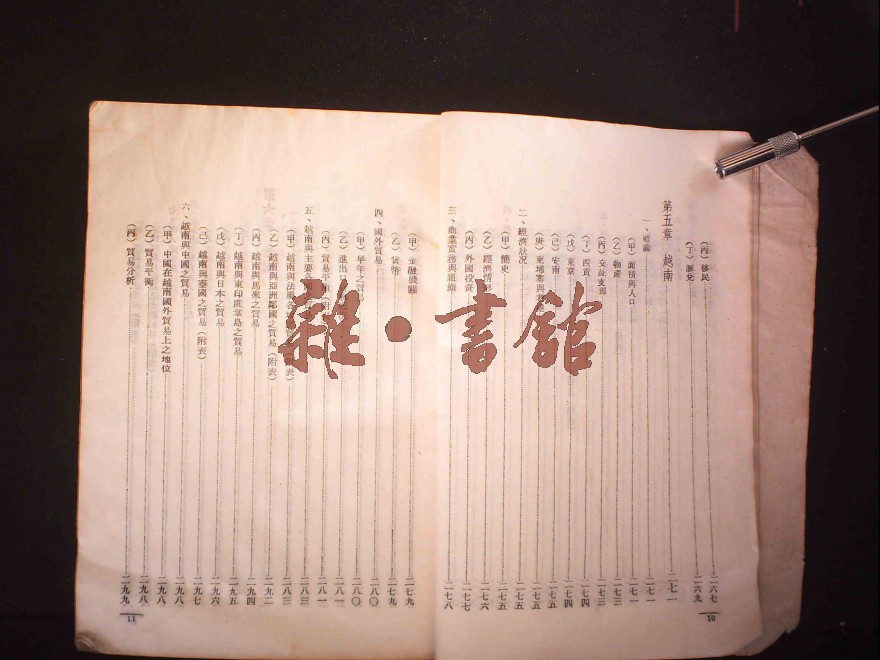 (丙) 移民 二六七
(丁) 滙兌 二六九
第五章 越南 二七一
一、概論 二七一
(甲) 面積與人口 二七一
(乙) 物產 二七三
(丙) 交趾支那 二七三
(丁) 四貢 二七四
(戊) 東京 二七四
(己) 安南 二七五
(庚) 東埔寨與 二七五
二、經濟狀况 二七五
(甲) 簡史 二七五
(乙) 經濟 二七六
(丙) 外國投資 二七七
三、商業實務與組織 二七八
10
(甲) 金融機關 二七九
(乙) 貨幣 二七九
四、國外貿易 二八〇
(甲) 早年之貿 二八〇
(乙) 進出口 二八一
(丙) 貿易平衡 二八一
五、越南與主要 二八三
(甲) 越南與法 二八三
(乙) 越南與亞洲鄰國之貿易 (附表) 二九二
(丙) 越南與馬來之貿易 二九四
(丁) 越南與東印度羣島之貿易 二九五
(戊) 越南與日本之貿易 二九六
(己) 越南與泰國之貿易 (附表) 二九七
六、越南與中國之貿易 二九八
(甲) 中國在越南國外貿易上之地位 二九八
(乙) 貿易平衡 二九八
(丙) 貿易分析 二九九
11
雜·書館